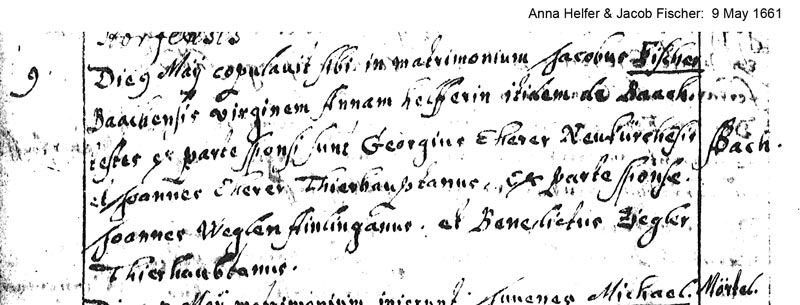 Anna Helfer & Jacob Fischer: 9 May 1661
9 Die 9 Maÿ copulavit sibi in matrimonium Jacobus Fischer
Baachensis virginem Annam helfferin itidem de Baach
testes ex parte sponsi sunt Georgius Eherer Neukürchensis Bach.
et Joannes Eherer Thierhaubtanus, ex parte sponse
Joannes Weglen et Benedictus Ziegler
Thierhaubtanus.
Maÿ matrimonium inierunt Juvenes Michael Mörtel.